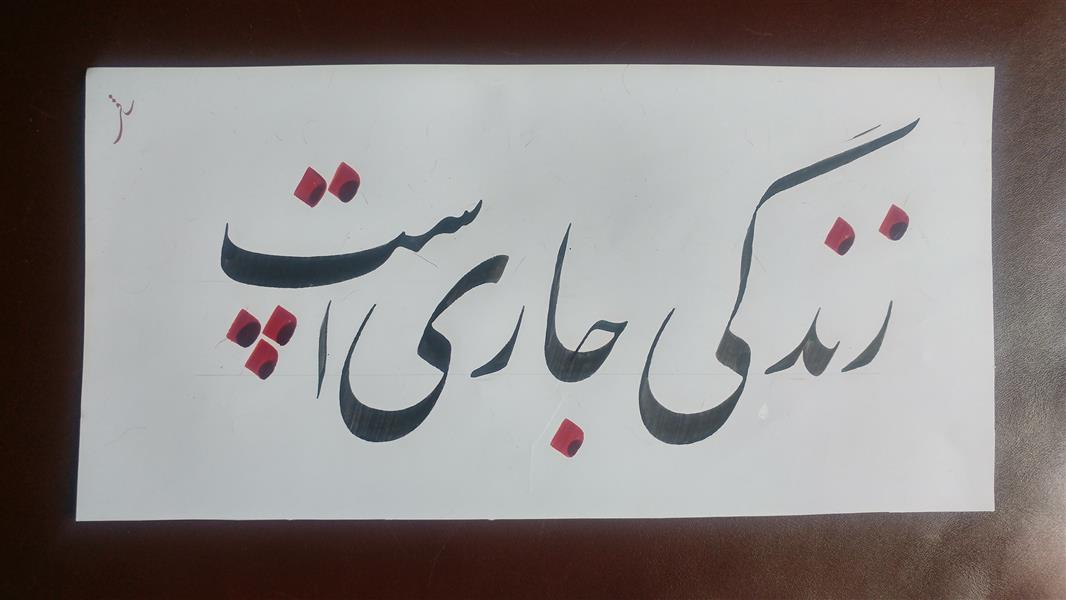 زندگی جاری است